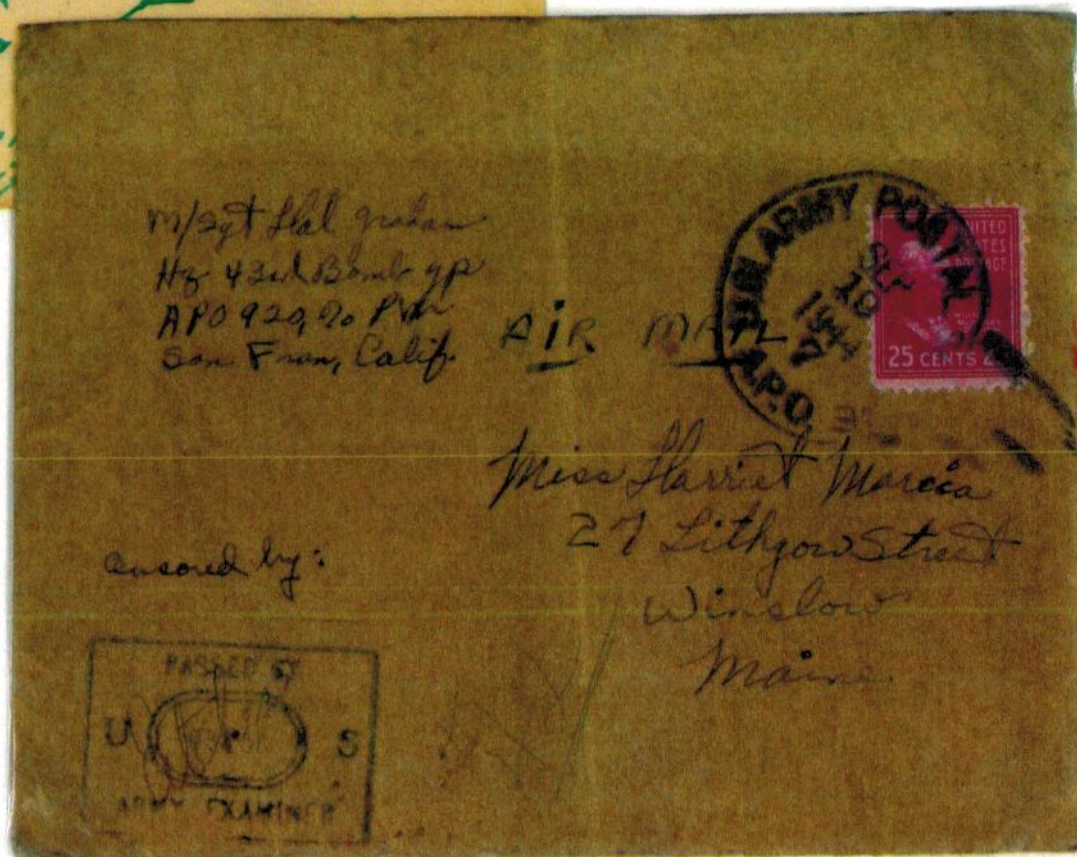 M/Sgt Hal Graham
Hq 43rd Bomb Gp
APO 920, % PM
San Fran, Calif.
AIR MAIL
U.S. ARMY POSTAL
A.P.O.
10
UNITED
STATES
POSTAGE
25 CENTS
Miss Harriet Marcia
27 Lithgow Street
Winslow
Maine
Censored by:
PASSED BY
U S
ARMY EXAMINER